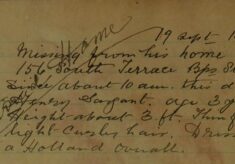 Home
19 Sept 1
Missing from his home
156 South Terrace
Since about 10 am. this d
Henry Sargant. age 3
Height about 3 ft.
light Curly hair. Dress
a Holland overall.